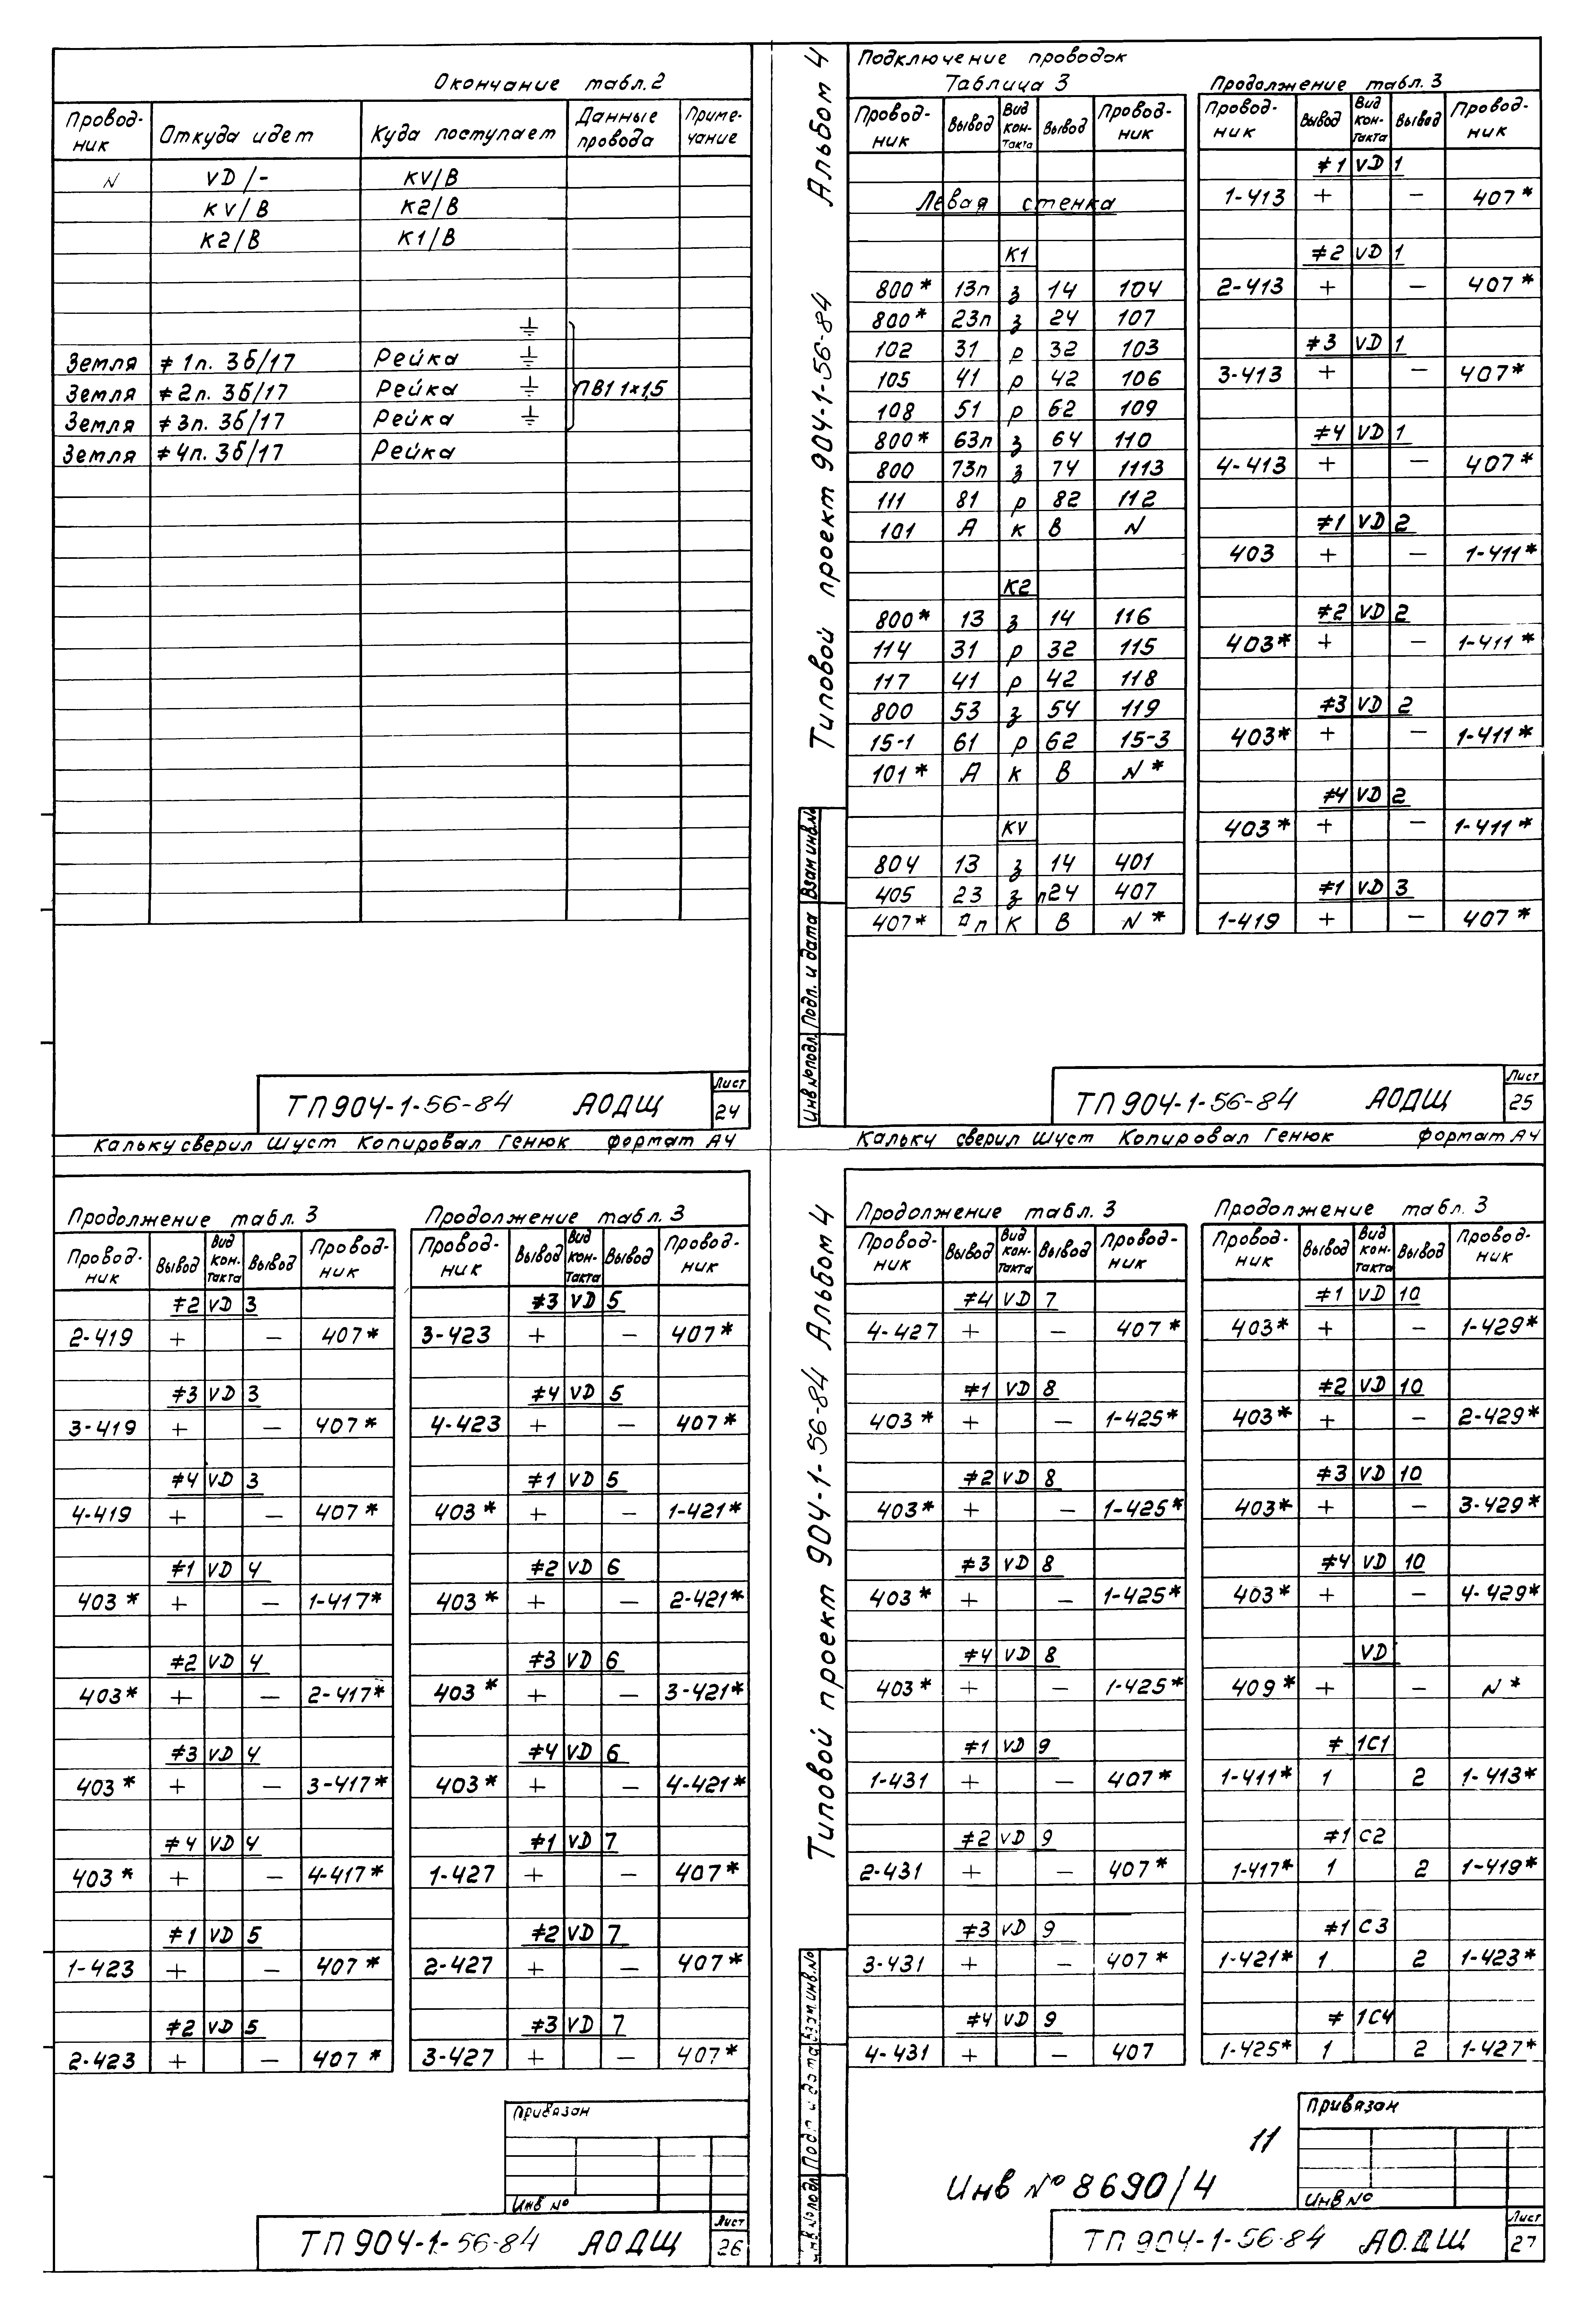 Окончание табл. 2
Провод-ник Откуда идет Куда поступает Данные провода Приме-чание
N VD/- KV/B
KV/B K2/B
K2/B K1/B
⏚
Земля ≠1п. 3б/17 Рейка ⏚
Земля ≠2п. 3б/17 Рейка ⏚ ПВ1 1×1,5
Земля ≠3п. 3б/17 Рейка ⏚
Земля ≠4п. 3б/17 Рейка
ТП904-1-56-84 АОДЩ
Лист
24
Кальку сверил Шуст Копировал Генюк формат А4
Типовой проект 904-1-56-84 Альбом 4
Подключение проводок
Таблица 3
Провод-ник Вывод Вид кон-такта Вывод Провод-ник
Левая стенка
K1
800* 13п з 14 104
800* 23п з 24 107
102 31 р 32 103
105 41 р 42 106
108 51 р 62 109
800* 63п з 64 110
800 73п з 74 1113
111 81 р 82 112
101 А к В N
K2
800* 13 з 14 116
114 31 р 32 115
117 41 р 42 118
800 53 з 54 119
15-1 61 р 62 15-3
101* А к В N*
KV
804 13 з 14 401
405 23 з п24 407
407* п К В N*
Продолжение табл. 3
Провод-ник Вывод Вид кон-такта Вывод Провод-ник
≠1 VD 1
1-413 + – 407*
≠2 VD 1
2-413 + – 407*
≠3 VD 1
3-413 + – 407*
≠4 VD 1
4-413 + – 407*
≠1 VD 2
403 + – 1-411*
≠2 VD 2
403* + – 1-411*
≠3 VD 2
403* + – 1-411*
≠4 VD 2
403* + – 1-411*
≠1 VD 3
1-419 + – 407*
Инв №подл. Подп. и дата Взам инв.№
ТП904-1-56-84 АОДЩ
Лист
25
Кальку сверил Шуст Копировал Генюк формат А4
Продолжение табл. 3
Провод-ник Вывод Вид кон-такта Вывод Провод-ник
≠2 VD 3
2-419 + – 407*
≠3 VD 3
3-419 + – 407*
≠4 VD 3
4-419 + – 407*
≠1 VD 4
403* + – 1-417*
≠2 VD 4
403* + – 2-417*
≠3 VD 4
403* + – 3-417*
≠4 VD 4
403* + – 4-417*
≠1 VD 5
1-423 + – 407*
≠2 VD 5
2-423 + – 407*
Продолжение табл. 3
Провод-ник Вывод Вид кон-такта Вывод Провод-ник
≠3 VD 5
3-423 + – 407*
≠4 VD 5
4-423 + – 407*
≠1 VD 5
403* + – 1-421*
≠2 VD 6
403* + – 2-421*
≠3 VD 6
403* + – 3-421*
≠4 VD 6
403* + – 4-421*
≠1 VD 7
1-427 + – 407*
≠2 VD 7
2-427 + – 407*
≠3 VD 7
3-427 + – 407*
Привязан
Инв №
ТП904-1-56-84 АОДЩ
Лист
26
Типовой проект 904-1-56-84 Альбом 4
Продолжение табл. 3
Провод-ник Вывод Вид кон-такта Вывод Провод-ник
≠4 VD 7
4-427 + – 407*
≠1 VD 8
403* + – 1-425*
≠2 VD 8
403* + – 1-425*
≠3 VD 8
403* + – 1-425*
≠4 VD 8
403* + – 1-425*
≠1 VD 9
1-431 + – 407*
≠2 VD 9
2-431 + – 407*
≠3 VD 9
3-431 + – 407*
≠4 VD 9
4-431 + – 407
Продолжение табл. 3
Провод-ник Вывод Вид кон-такта Вывод Провод-ник
≠1 VD 10
403* + – 1-429*
≠2 VD 10
403* + – 2-429*
≠3 VD 10
403* + – 3-429*
≠4 VD 10
403* + – 4-429*
VD
409* + – N*
≠ 1C1
1-411* 1 2 1-413*
≠1 C2
1-417* 1 2 1-419*
≠1 C3
1-421* 1 2 1-423*
≠ 1C4
1-425* 1 2 1-427*
Инв.№подл Подп. и дата Взам.инв.№
11
Инв № 8690/4
Привязан
Инв №
ТП904-1-56-84 АО.ДЩ
Лист
27